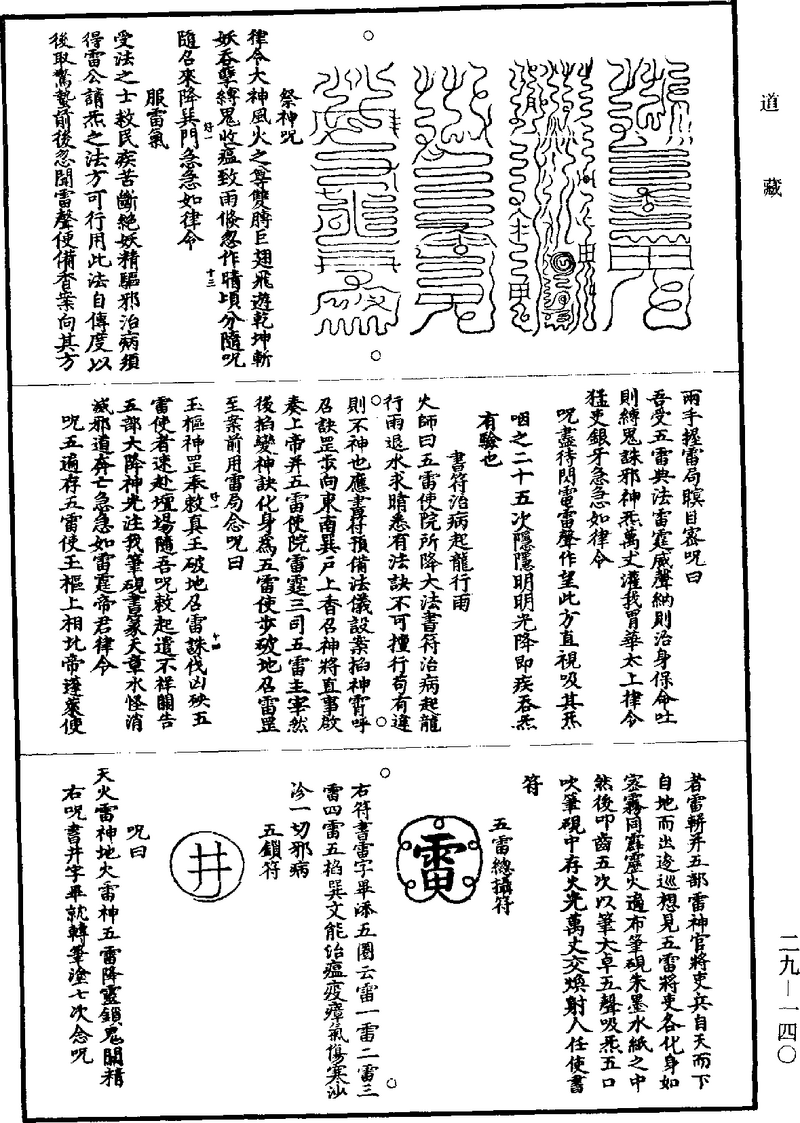 道藏
祭神咒
律令大神風火之尊雙睛巨翅飛遊乾坤斬
妖吞孽縛鬼收瘟致雨倏忽作晴頃分隨咒
隨召來降巽門急急如律令
十三
服雷氣
受法之士救民疾苦斷絕妖精驅邪治病須
得雷公請炁之法方可行用此法自傳度以
後取驚蟄前後忽聞雷聲便備香案向其方
兩手握雷局瞑目密咒曰
吾受五雷典法雷霆威聲納則治身保命吐
則縛鬼誅邪神炁萬丈灌我胃華太上律令
猛吏銀牙急急如律令
咒盡待閃電雷聲作望此方直視吸其炁
咽之二十五次隱隱明明光降即疾吞炁
有驗也
書符治病起龍行雨
火師曰五雷使院所降大法書符治病起龍
行雨退水求晴悉有法訣不可擅行苟有違
則不神也應書符預備法儀設案掐神霄呼
召訣罡步向東南巽戶上香召神將直事啟
奏上帝并五雷使院雷霆三司五雷主宰然
後掐變神訣化身為五雷使步破地召雷罡
至案前用雷局念咒曰
十四
玉樞神罡奉敕真王破地召雷誅伐凶殃五
雷使者速赴壇場隨吾咒敕起遣不祥關告
五部大降神光注我筆硯書篆天章水怪消
滅邪道奔亡急急如雷霆帝君律令
咒五遍存五雷使玉樞上相北帝蓬萊使
者雷輧并五部雷神官將吏兵自天而下
自地而出逡巡想見五雷將吏各化身如
密霧同霹靂火遍布筆硯朱墨水紙之中
然後叩齒五次以筆大卓五聲吸炁五口
吹筆硯中存火光萬丈交煥射人任使書
符
五雷總攝符
雷
右符書雷字畢添五圈云雷一雷二雷三
雷四雷五掐巽文能治瘟疫瘴氣傷寒沙
沴一切邪病
五鎖符
井
咒曰
天火雷神地火雷神五雷降靈鎖鬼關精
右咒書井字畢就轉筆塗七次念咒
二九—一四〇